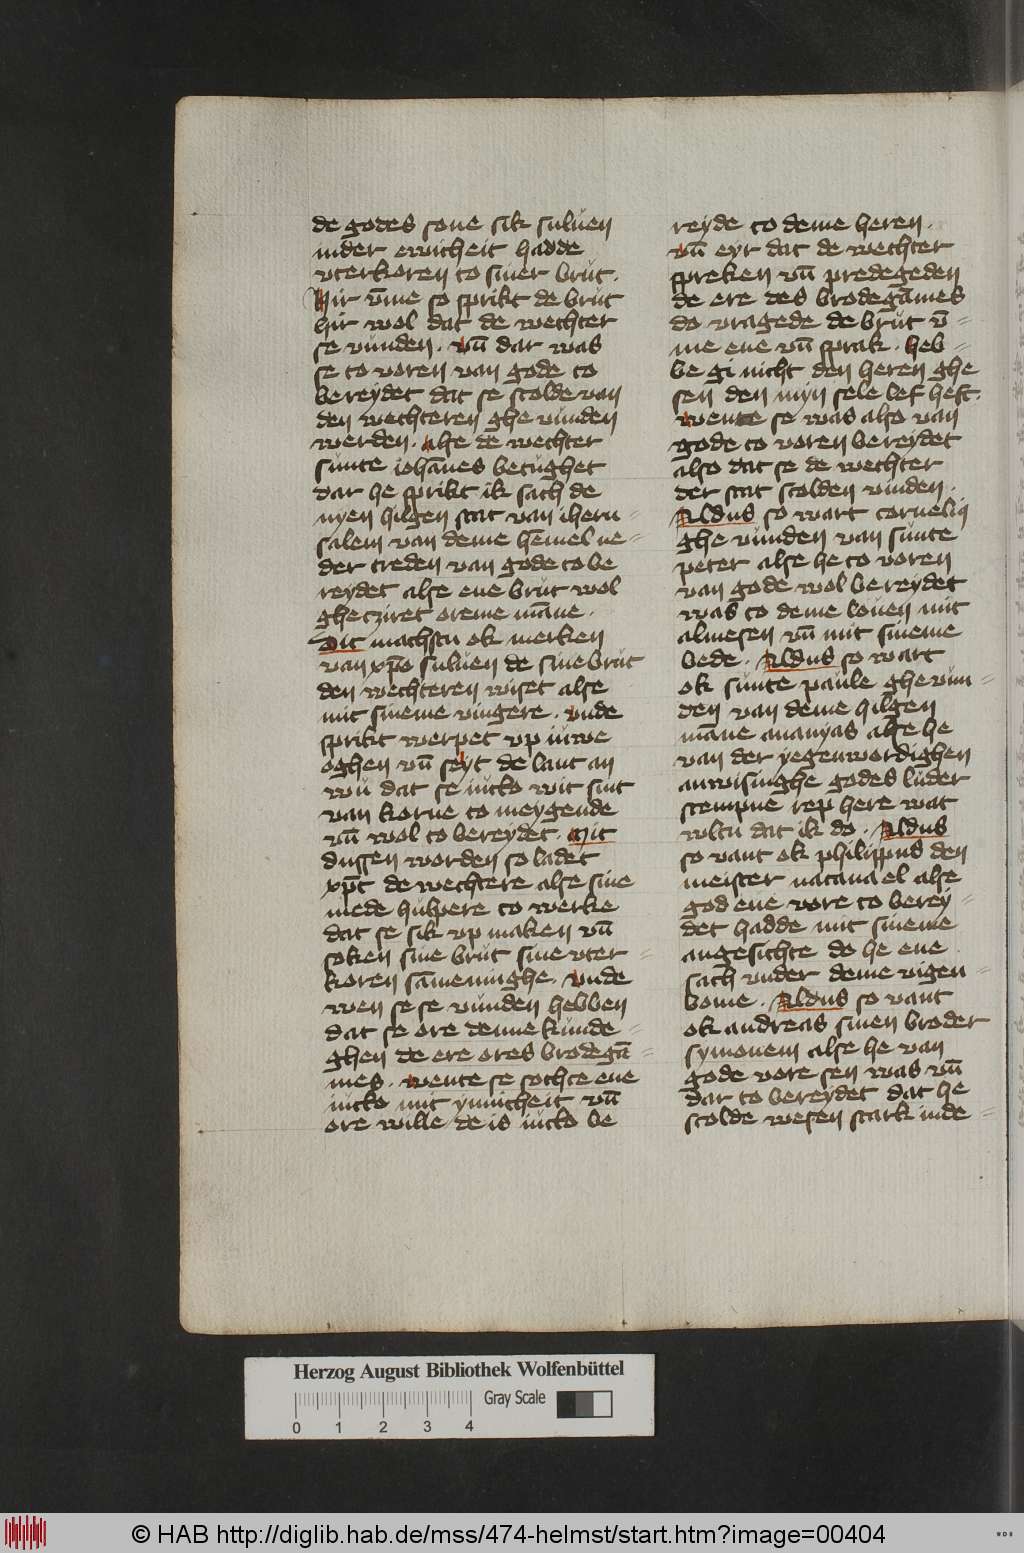 de godes sone sik suluen
inder ewicheit hadde
vterkoren to siner brut.
Hir v̄me so sprikt de brut
hir wol dat de wechter
se vunden. vn̄ dar was
se to voren van gode to
bereydet dat se scolde van
den wechteren ghe vunden
werden. alse de wechter
sunte iohānes betughet
dar he sprikt ik sach de
nyen hilgen stat van iheru-
salem van deme hemel ne-
der treden van gode to be
reydet alse ene brut wol
ghecziret oreme māne.
Dit machstu ok merken
van xp̄o suluen de sine brut
den wechteren wiset alse
mit sineme vingere. vnde
sprikt werpet vp iuwe
oghen vn̄ seyt de lant an
wu dat se iucko wit sint
van korne to meygende
vn̄ wol to bereydet. Mit
dussen worden so ladet
xp̄c de wechtere alse sine
mede hulpere to werke
dat se sik vp maken vn̄
soken sine brut sine vter-
koren sāmeninghe. vnde
wen se se vunden hebben
dat se ore denne kunde-
ghen de ere ores brodegā-
mes. wente se sochte ene
iucko mit ynnicheit vn̄
ore wille de is iucko be
reyde to deme heren.
vn̄ eyr dat de wechter
spreken vn̄ predegeden
de ere des brodegāmes
do vragede de brut v̄-
me ene vn̄ sprak. heb-
be gi nicht den heren ghe
sen den myn sele lef heft.
wente se was also van
gode to voren bereydet
also dat se de wechter
der stat scolden vinden.
Aldus so wart cornelius
ghe vunden van sunte
peter alse he to voren
van gode wol bereydet
was to deme louen mit
almesen vn̄ mit sineme
bede. Aldus so wart
ok sunte paule ghe vun-
den van deme hilgen
māne ananyas alse he
van der yegenwordighen
anwisinghe godes luder
stempne rep here wat
wltu dat ik do. Aldus
so vant ok philippus den
meister natanael alse
god ene vore to berey-
det hadde mit sineme
angesichte do he ene
sach vnder deme vigen-
bome. Aldus so vant
ok andreas sinen broder
symonem alse he van
gode vore sen was vn̄
dar to bereydet dat he
scolde wesen stark inde-
Herzog August Bibliothek Wolfenbüttel
0 1 2 3 4 Gray Scale
© HAB http://diglib.hab.de/mss/474-helmst/start.htm?image=00404
WDB